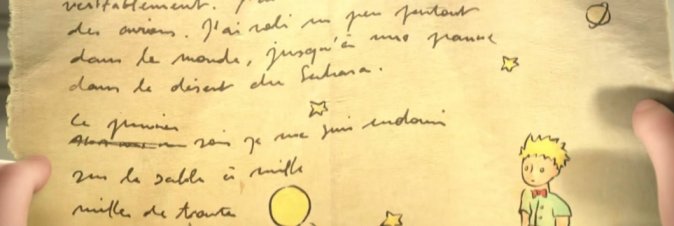 véritablement.
des avions. J'ai volé un peu partout
dans le monde, jusqu'à une panne
dans le désert du Sahara.
Le premier
soir je me suis endormi
sur le sable à mille
milles de toute